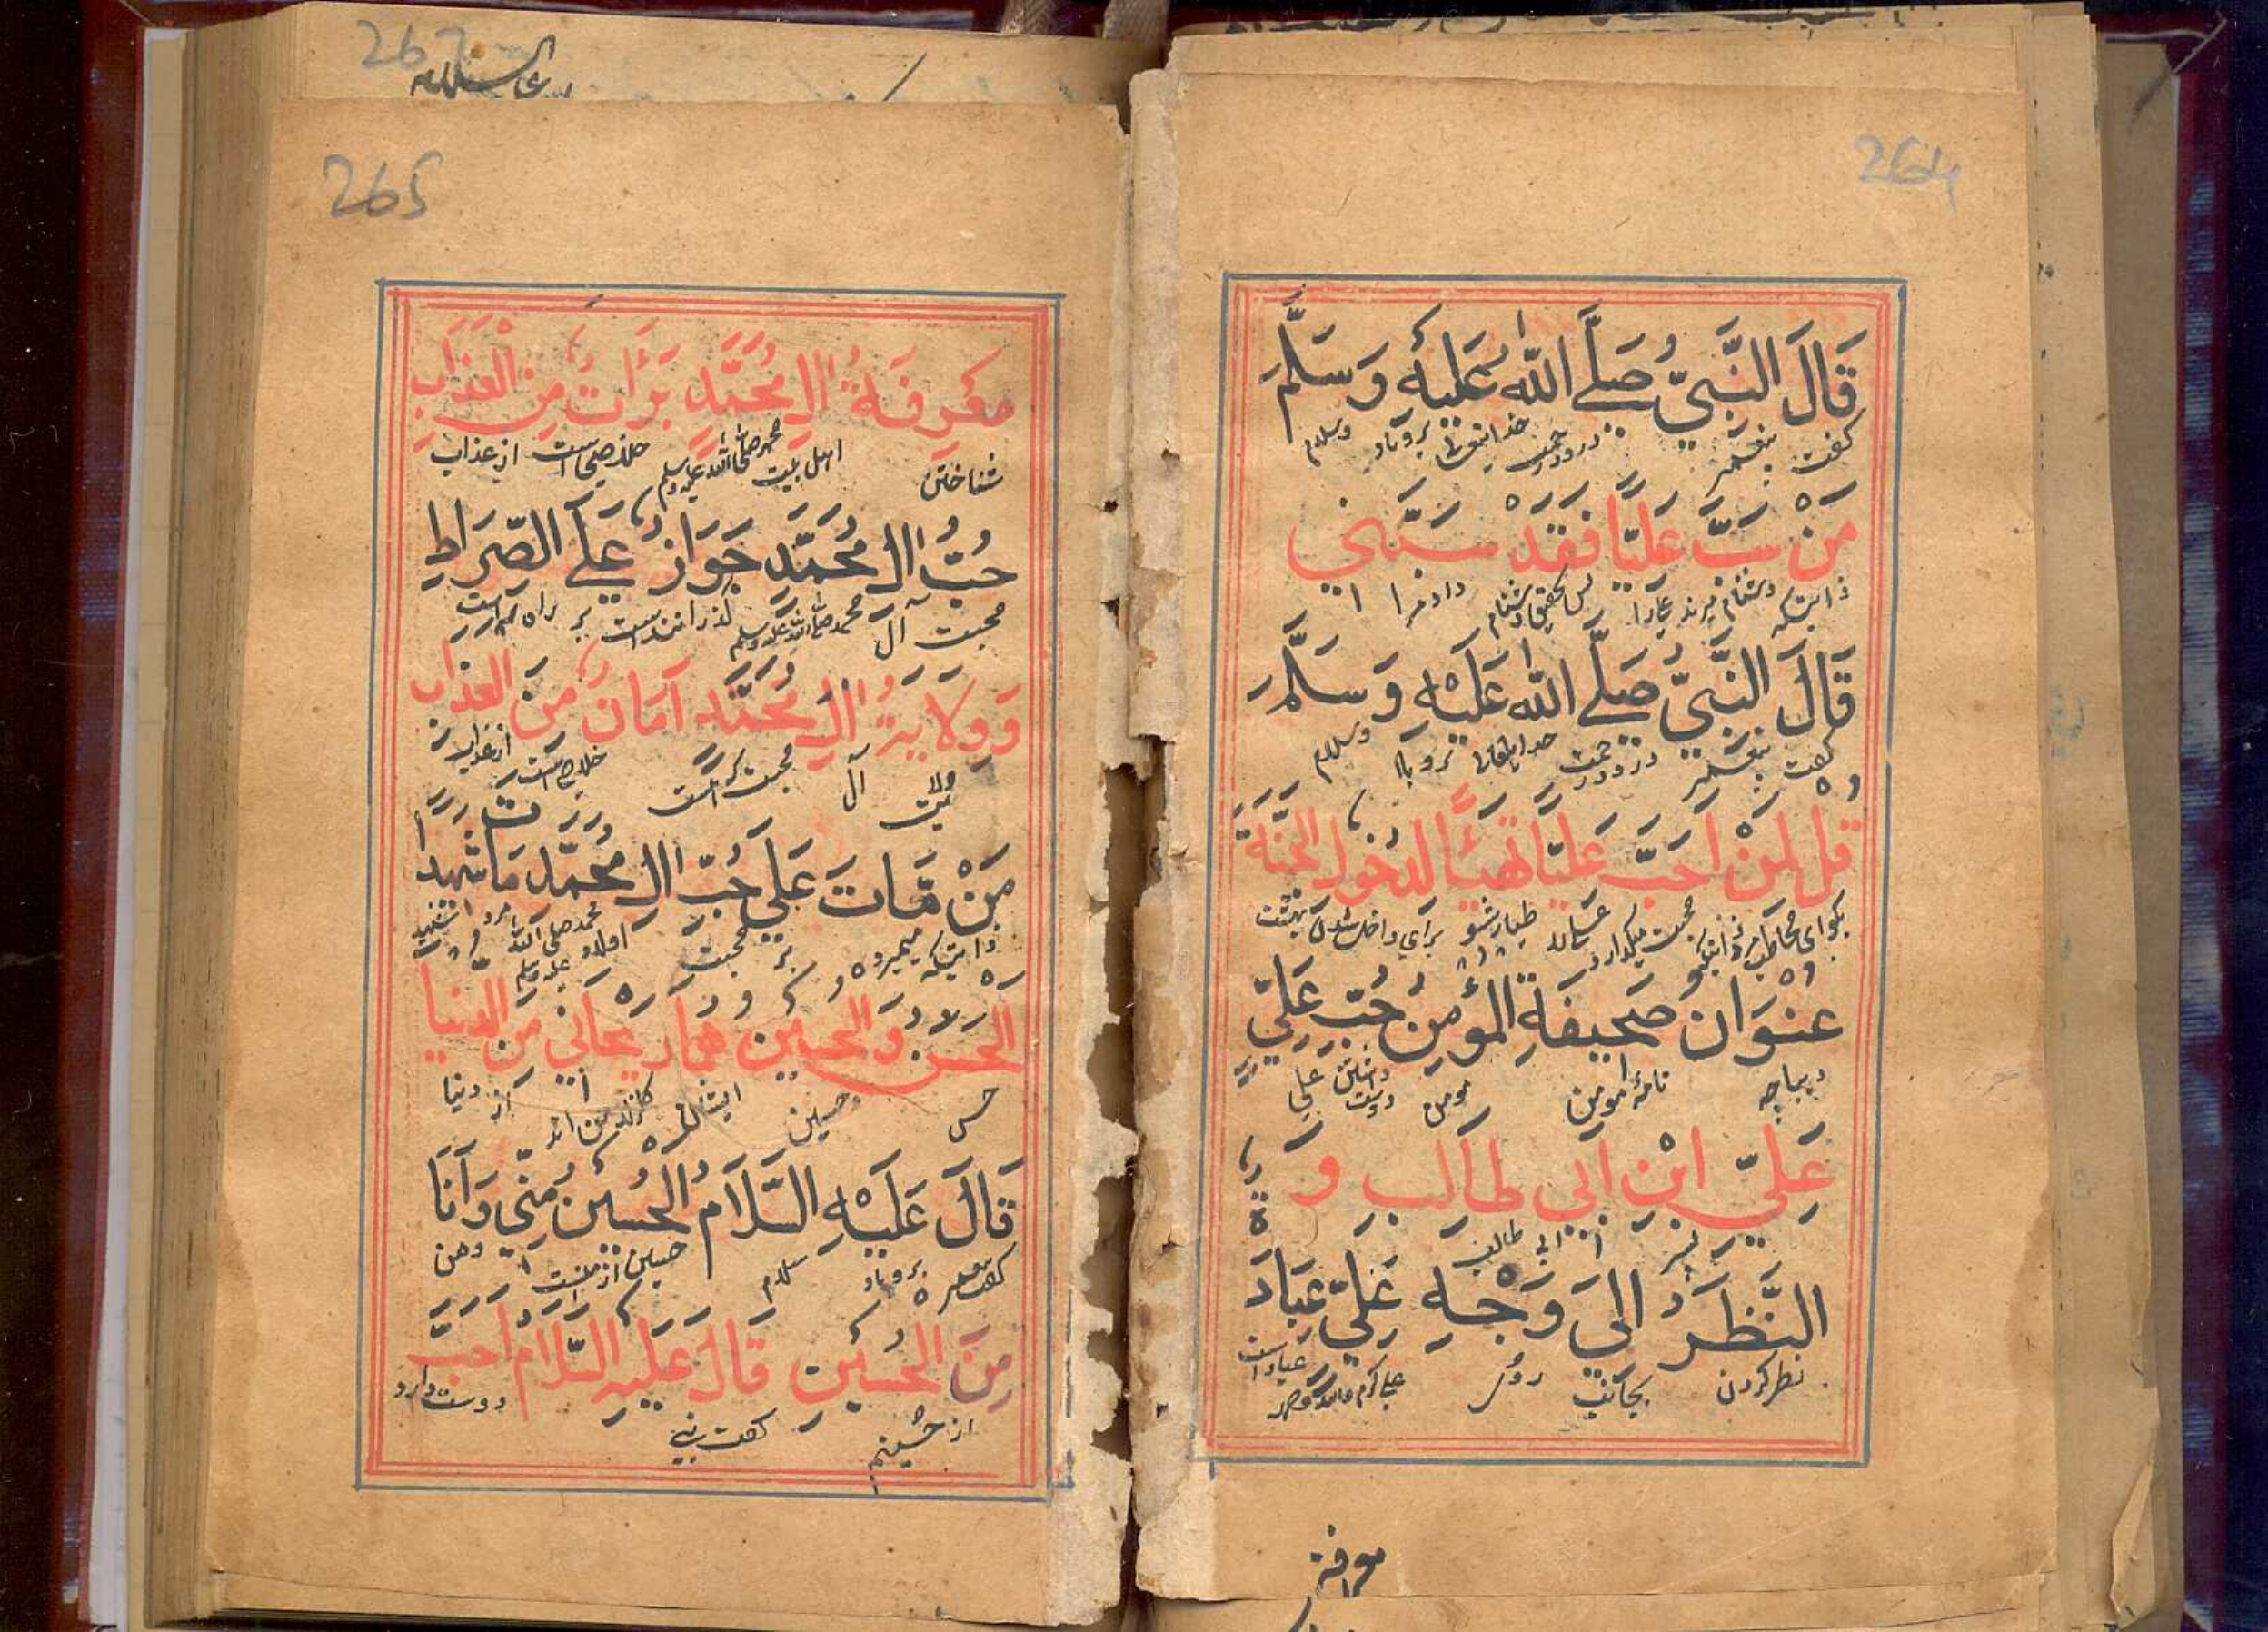 264
قَالَ النَّبِيُّ صَلَّے اللّٰه عَلَيْهِ وَسَلَّمَ
گفت پیغمبر درود رحمت خدایتعالی برو باد وسلام
مَنْ سَبَّ عَلِيًّا فَقَدْ سَبَّنِي
دشنام پس بتحقیق دشنام داد مرا
قَالَ النَّبِيُّ صَلَّے اللّٰه عَلَيْهِ وَسَلَّمَ
گفت پیغمبر درود رحمت خدایتعالی برو باد وسلام
قُلْ لِمَنْ اَحَبَّ عَلِيًّا تَهَيَّأْ لِدُخُولِ الْجَنَّةِ
بگو ای مخاطب محبت میکدارد طیار شو برای داخل شدن بهشت
عُنْوَان صَحِيفَةِ الْمُؤْمِنِ حُبُّ عَلِيِّ
دیباچه نامۀ مومن مومن دوست داشتن علي
عَلِيِّ ابْنِ اَبِي طَالِبٍ وَ
پسر ابي طالب
النَّظَرُ اِلَی وَجْهِ عَلِيٍّ عِبَادَة
نظر کردن بجانب روی
معرفة
267
265
مَعْرِفَةُ اٰلِ مُحَمَّدٍ بَرَأَتٌ مِنَ الْعَذَابِ
شناختن اهل بیت محمد صلی الله علیه وسلم خلاصی است از عذاب
حُبُّ اٰلِ مُحَمَّدٍ جَوَازٌ عَلَے الصِّرَاطِ
محبت آل محمد صلی الله علیه وسلم گذرانند است بر راه
وَوِلَايَةُ اٰلِ مُحَمَّدٍ اَمَانٌ مِنَ الْعَذَابِ
ولایت آل محبت خلاص است از عذاب
مَنْ مَّاتَ عَلَی حُبِّ اٰلِ مُحَمَّدٍ مَاتَ شَهِيدًا
میمیرد بر محبت اولاد محمد صلی الله علیه وسلم مرد شهید
الْحَسَنُ وَ الْحُسَيْنُ هُمَا رَيْحَانِي مِنَ الدُّنْيَا
حسن وحسین ایشان از دنیا
قَالَ عَلَيْهِ السَّلَامُ الْحُسَيْنُ مِنِّي وَاَنَا
برو باد سلام حسین از منست ومن
مِنَ الْحُسَيْنِ قَالَ عَلَيْهِ السَّلَامُ اَحَبَّ
از حسینم گفت نبی دوست دارد